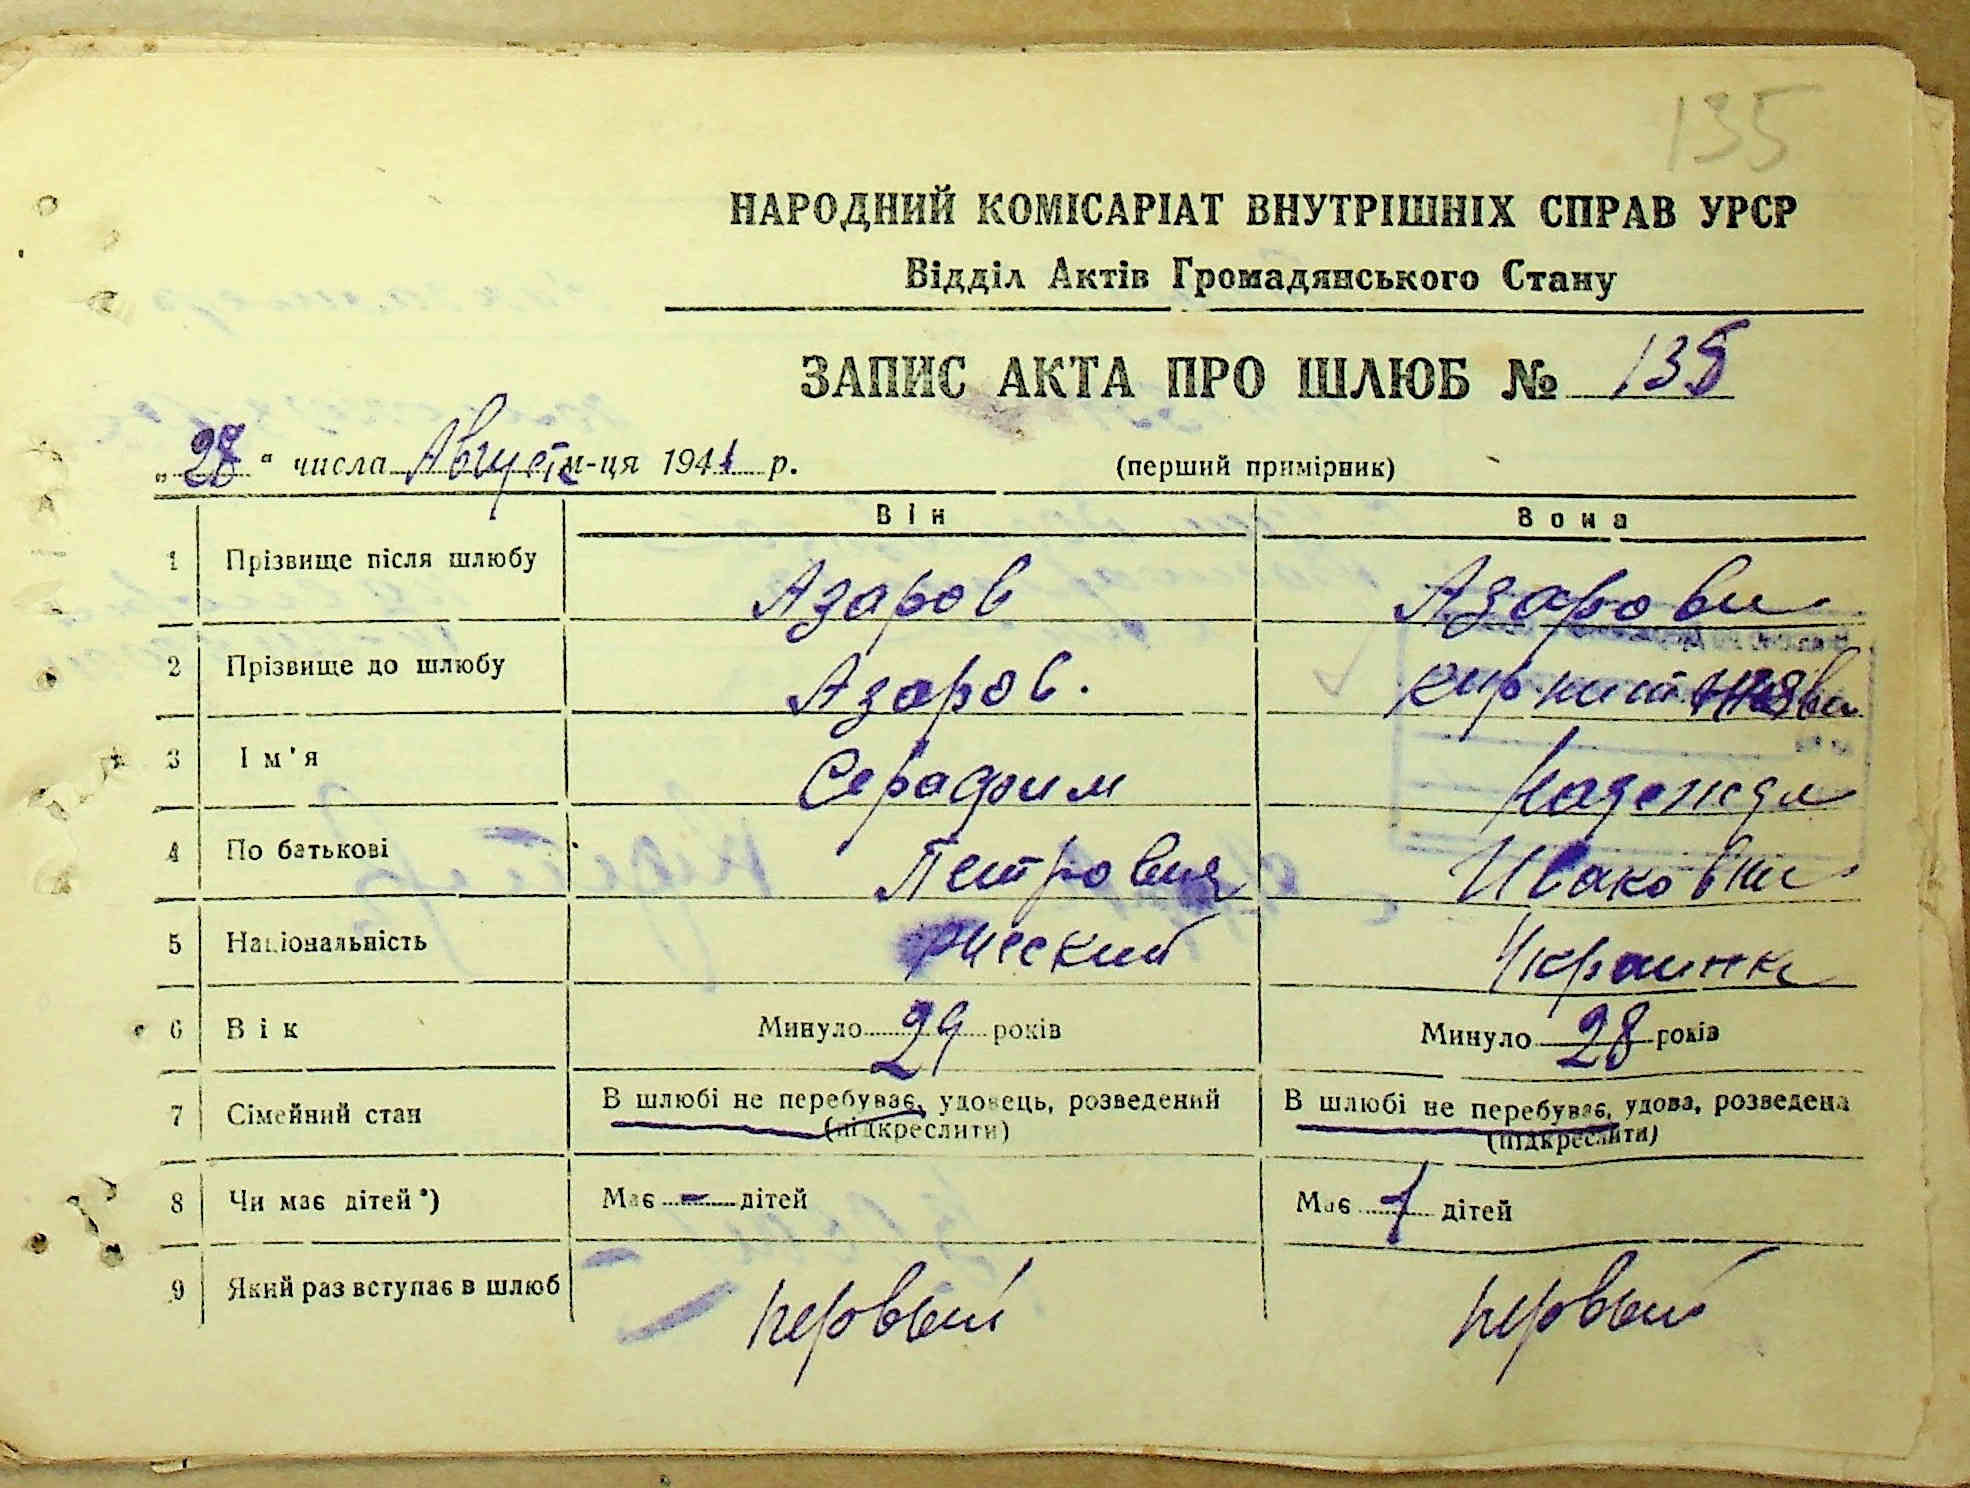 135
НАРОДНИЙ КОМІСАРІАТ ВНУТРІШНІХ СПРАВ УРСР
Відділ Актів Громадянського Стану
ЗАПИС АКТА ПРО ШЛЮБ № 135
„28“ числа Август м-ця 1941 р. (перший примірник)
Він Вона
1 Прізвище після шлюбу Азаров Азарова
2 Прізвище до шлюбу Азаров.
3 Ім'я Серафим Надежда
4 По батькові Петрович Исаковна
5 Національність русский Украинка
6 Вік Минуло 29 років Минуло 28 років
7 Сімейний стан В шлюбі не перебуває, удовець, розведений В шлюбі не перебуває, удова, розведена
(підкреслити) (підкреслити)
8 Чи має дітей*) Має - дітей Має 1 дітей
9 Який раз вступає в шлюб первый первый